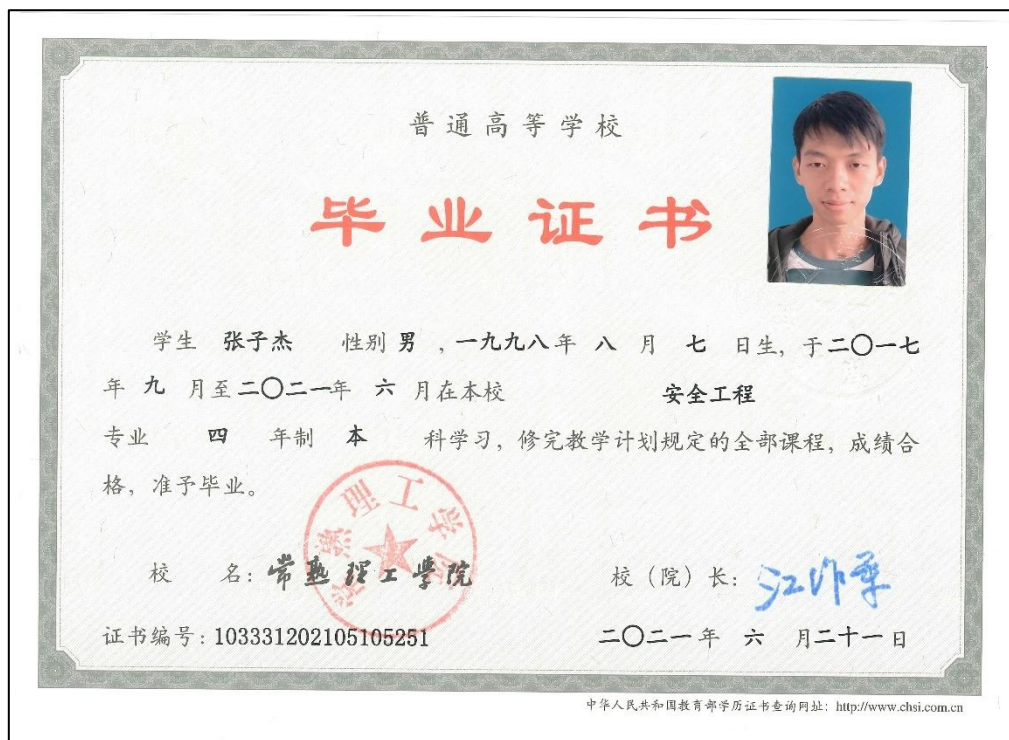 普通高等学校
毕业证书
学生 张子杰 性别 男 ,一九九八年 八 月 七 日生, 于二〇一七
年 九 月至二〇二一年 六 月在本校 安全工程
专业 四 年制 本 科学习, 修完教学计划规定的全部课程, 成绩合
格, 准予毕业。
常熟理工学院
校 名: 常熟理工學院 校(院)长: 江作军
证书编号: 103331202105105251 二〇二一年 六 月二十一日
中华人民共和国教育部学历证书查询网址: http://www.chsi.com.cn